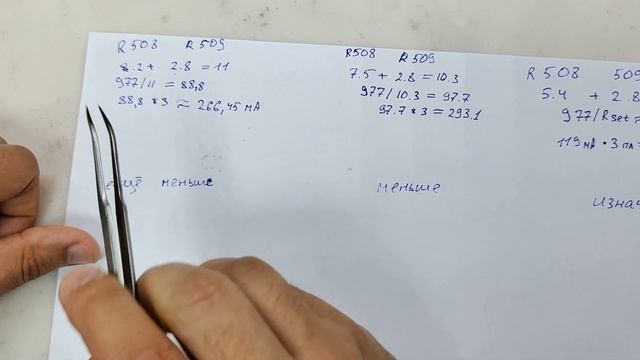 R508 R509
8.2 + 2.8 = 11
977/11 = 88,8
88,8 * 3 ≈ 266,45 мА
ещё меньше
R508 R509
7.5 + 2.8 = 10.3
977/10.3 = 97.7
97.7 * 3 = 293.1
меньше
R508 509
5.4 + 2.8
977/Rset ≈
119 мА * 3 пл =
изнач